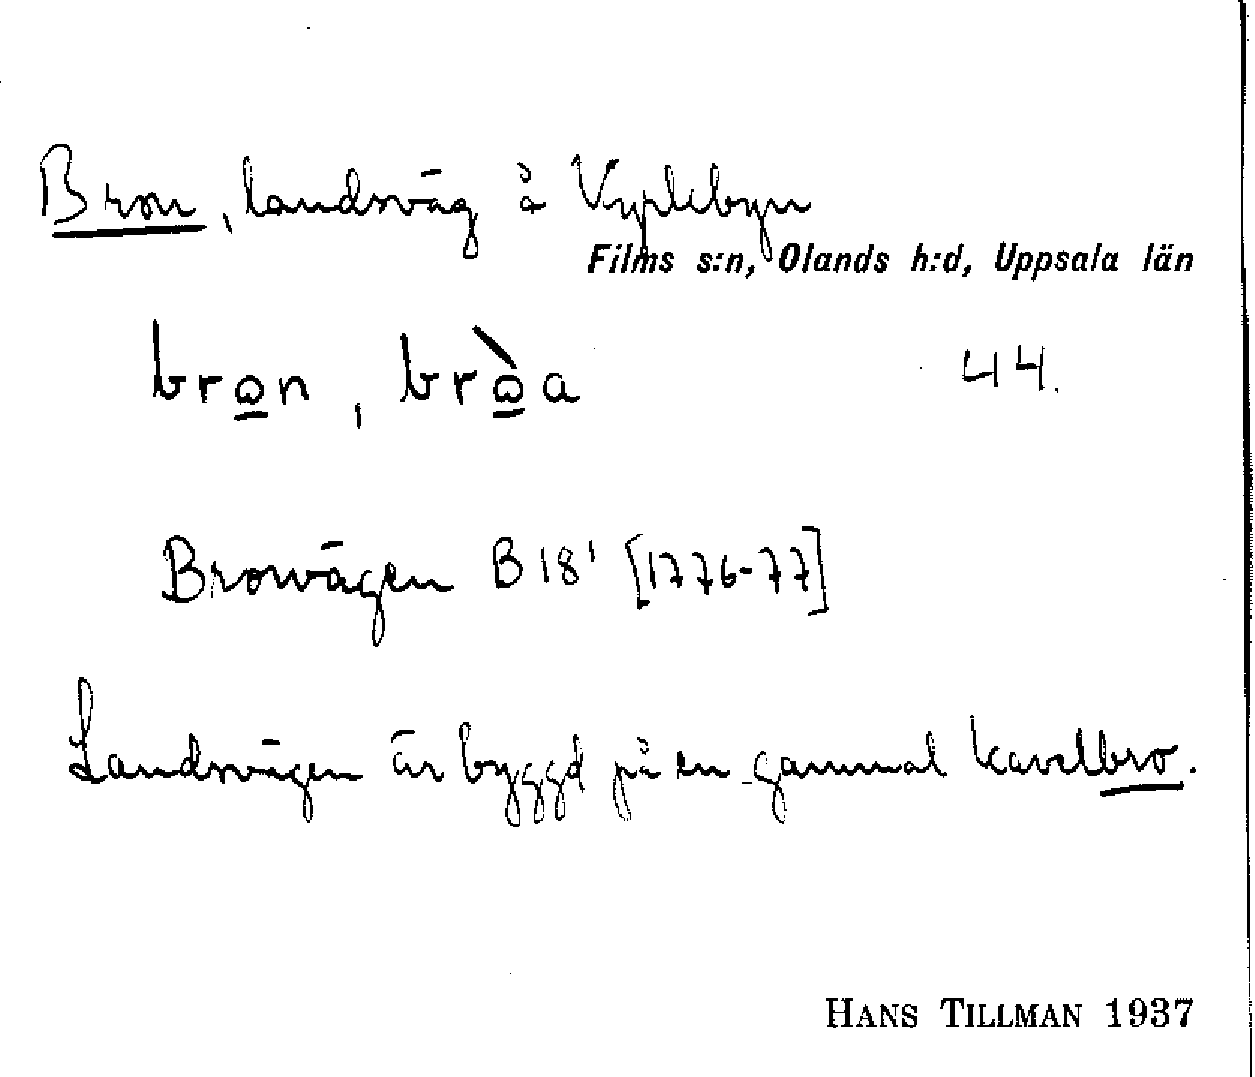 Bron, landsväg å Vyplebyn
Films s:n, Olands h:d, Uppsala län
bro̲n, brò̲a 44.
Browägen B 18¹ [1776-77]
Landsvägen är byggd på en gammal kavelbro.
HANS TILLMAN 1937